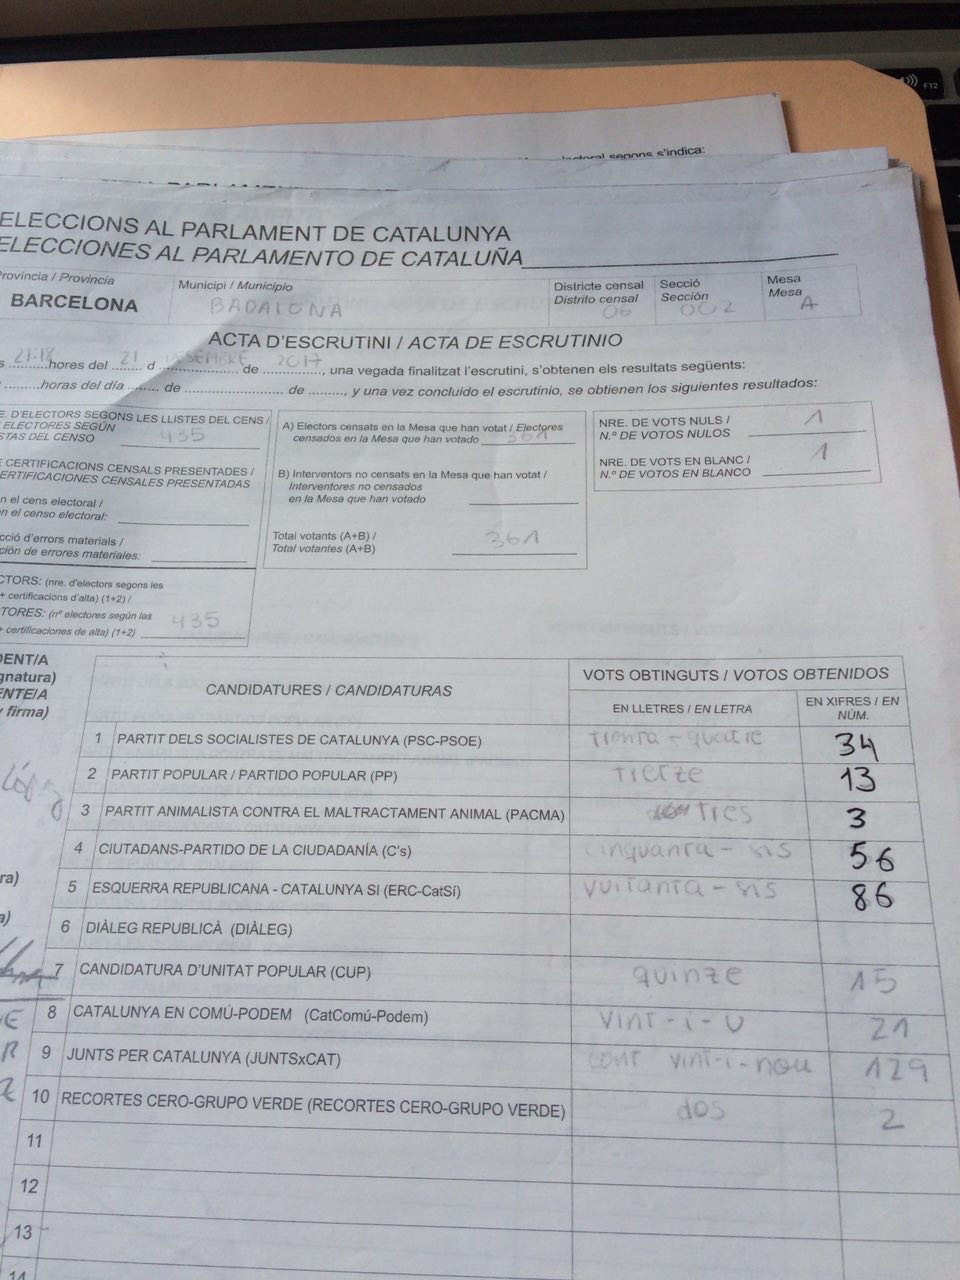 F12
lectoral segons s'indica:
ELECCIONS AL PARLAMENT DE CATALUNYA
ELECCIONES AL PARLAMENTO DE CATALUÑA
Província / Provincia
BARCELONA
Municipi / Municipio
BADALONA
Districte censal
Distrito censal
06
Secció
Sección
002
Mesa
Mesa
A
ACTA D'ESCRUTINI / ACTA DE ESCRUTINIO
s 21:18 hores del 21 d DESEMBRE de 2017, una vegada finalitzat l'escrutini, s'obtenen els resultats següents:
horas del día de de, y una vez concluido el escrutinio, se obtienen los siguientes resultados:
E. D'ELECTORS SEGONS LES LLISTES DEL CENS /
ELECTORES SEGÚN
STAS DEL CENSO 435
CERTIFICACIONS CENSALS PRESENTADES /
CERTIFICACIONES CENSALES PRESENTADAS
n el cens electoral /
n el censo electoral:
cció d'errors materials /
ción de errores materiales:
CTORS: (nre. d'electors segons les
+ certificacions d'alta) (1+2) /
TORES: (nº electores según las
+ certificaciones de alta) (1+2) 435
A) Electors censats en la Mesa que han votat / Electores
censados en la Mesa que han votado 361
B) Interventors no censats en la Mesa que han votat /
Interventores no censados
en la Mesa que han votado
Total votants (A+B) /
Total votantes (A+B) 361
NRE. DE VOTS NULS /
N.º DE VOTOS NULOS 1
NRE. DE VOTS EN BLANC /
N.º DE VOTOS EN BLANCO 1
DENT/A
gnatura)
ENTE/A
y firma)
CANDIDATURES / CANDIDATURAS
VOTS OBTINGUTS / VOTOS OBTENIDOS
EN LLETRES / EN LETRA
EN XIFRES / EN
NÚM.
1 PARTIT DELS SOCIALISTES DE CATALUNYA (PSC-PSOE) trenta-quatre 34
2 PARTIT POPULAR / PARTIDO POPULAR (PP) tretze 13
3 PARTIT ANIMALISTA CONTRA EL MALTRACTAMENT ANIMAL (PACMA) tres 3
4 CIUTADANS-PARTIDO DE LA CIUDADANÍA (C's) cinquanta-sis 56
5 ESQUERRA REPUBLICANA - CATALUNYA SI (ERC-CatSí) vuitanta-sis 86
6 DIÀLEG REPUBLICÀ (DIÀLEG)
7 CANDIDATURA D'UNITAT POPULAR (CUP) quinze 15
8 CATALUNYA EN COMÚ-PODEM (CatComú-Podem) vint-i-u 21
9 JUNTS PER CATALUNYA (JUNTSxCAT) cent vint-i-nou 129
10 RECORTES CERO-GRUPO VERDE (RECORTES CERO-GRUPO VERDE) dos 2
11
12
13
14